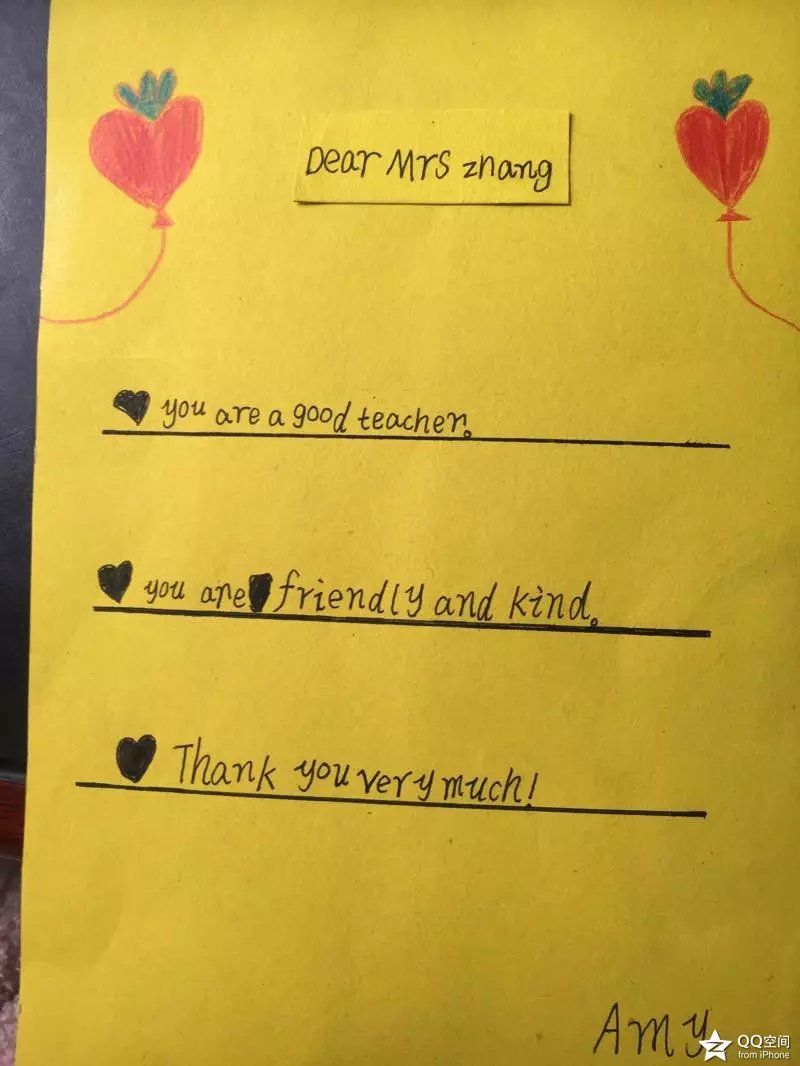 Dear Mrs zhang
you are a good teacher。
you are friendly and kind。
Thank you very much!
Amy
QQ空间
from iPhone